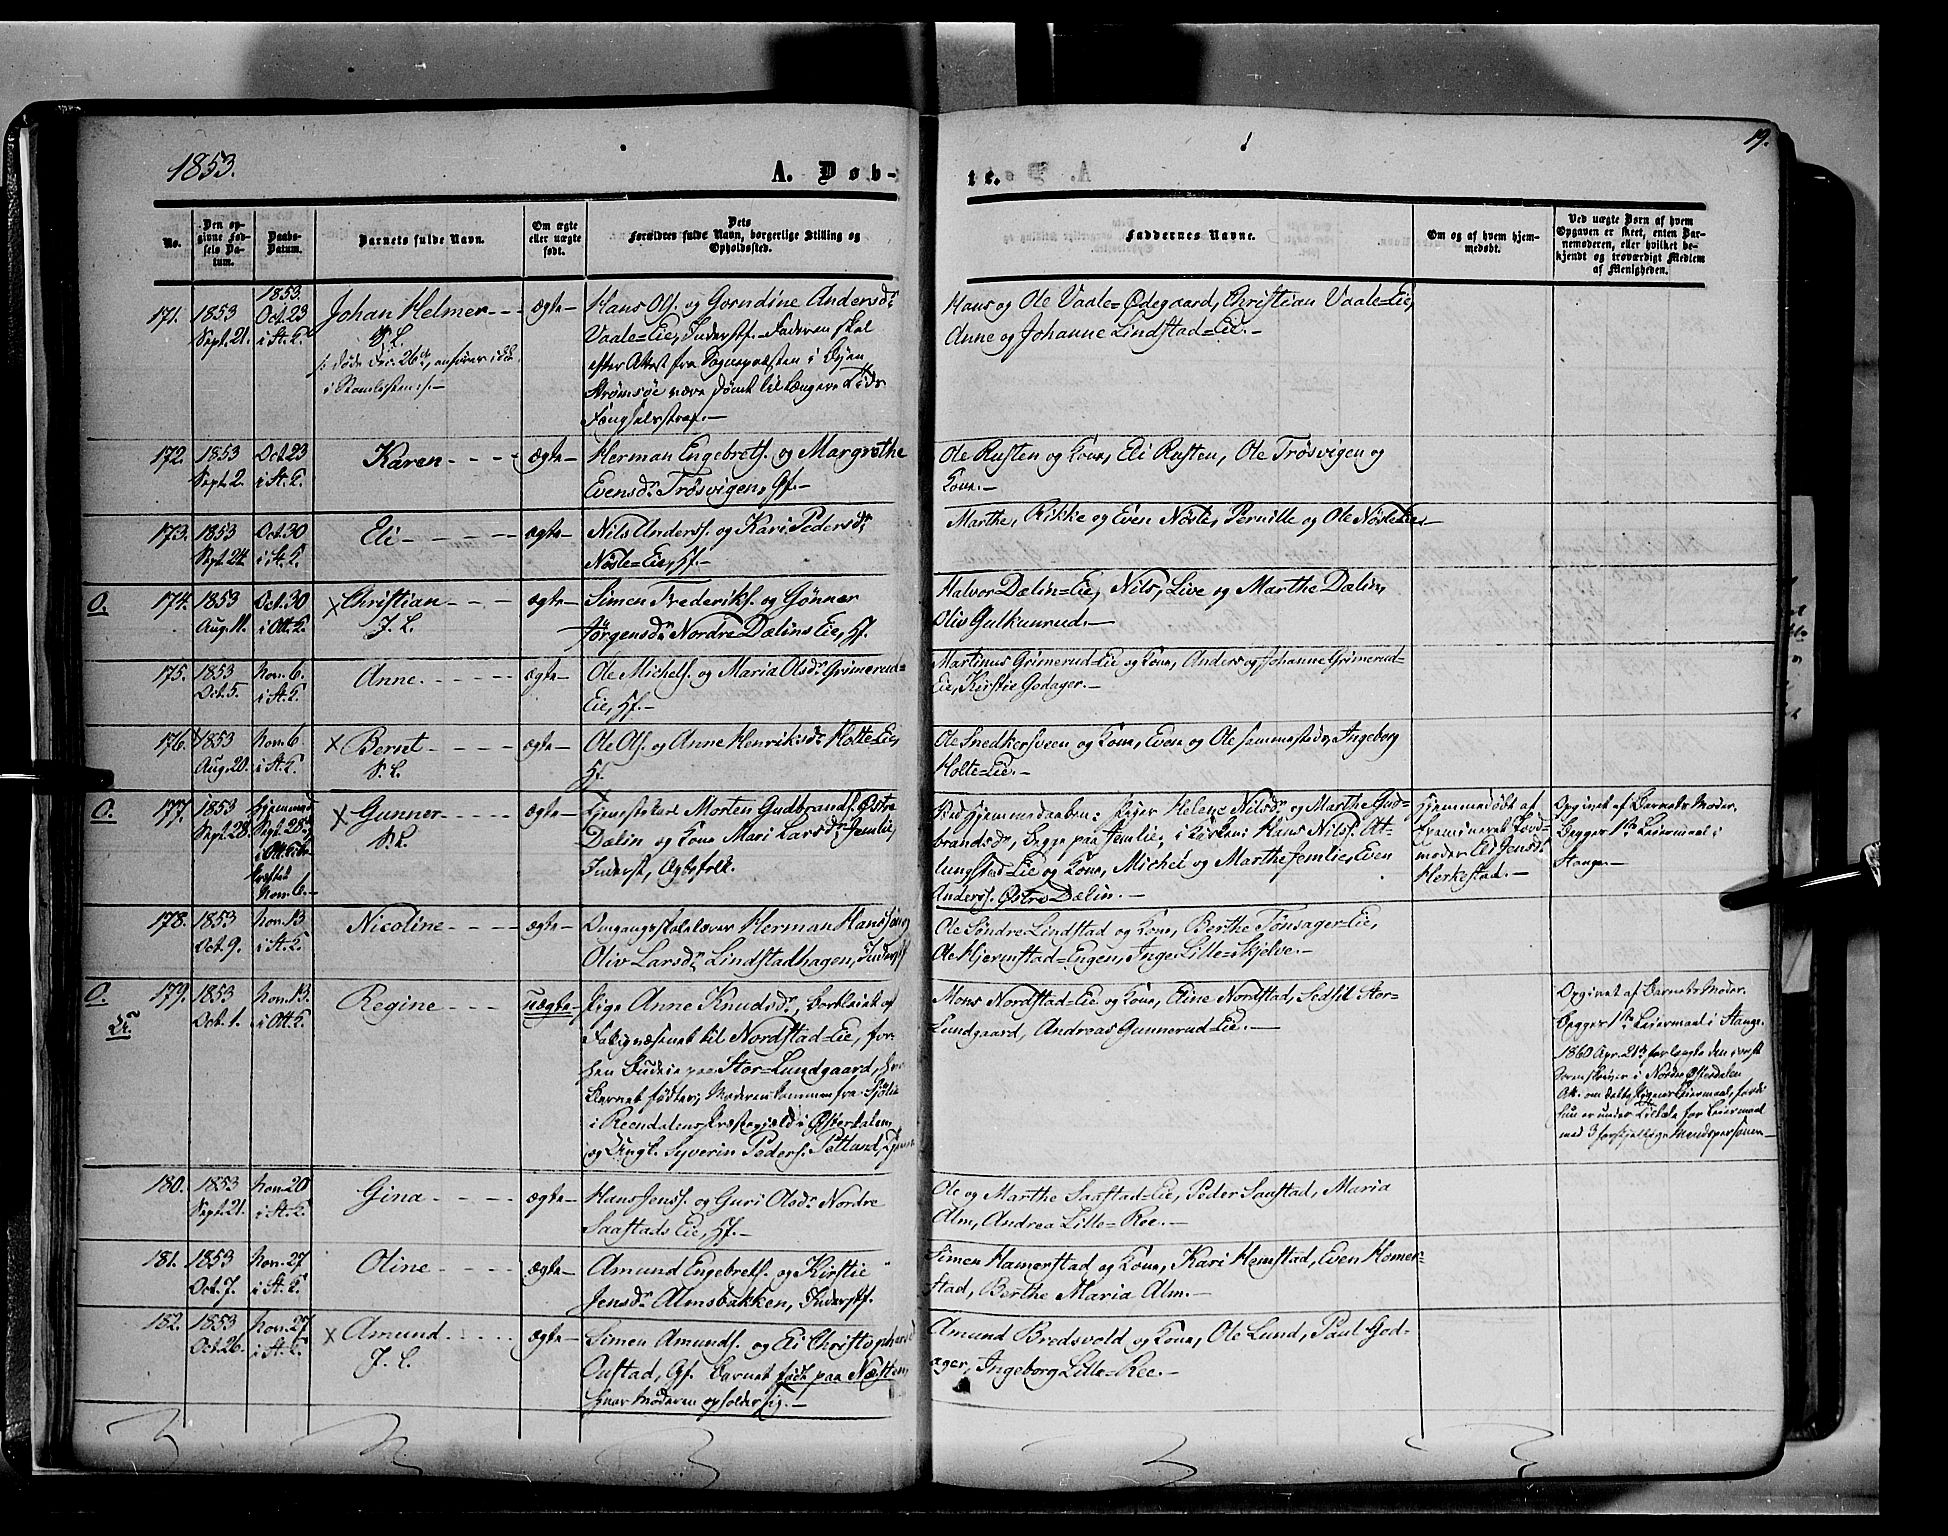 1853.
A. Døb-
te.
19.
No.
Den op-
givne Fød-
sels Da-
tum.
Daabs-
Datum.
Barnets fulde Navn.
Om ægte
eller uægte
født.
Dets
Forældres fulde Navn, borgerlige Stilling og
Opholdssted.
Faddernes Navne.
Om og af hvem hjem-
medøbt.
Ved uægte Børn af hvem
Opgaven er skeet, enten Bar-
nemoderen, eller hvilket be-
kjendt og troværdigt Medlem
af Menigheden.
171. 1853 Sept. 21.
1853. Oct. 23 i St. K.
Johan Helmer
ægte
Hans Ols. og Gorndine Andersdr
Vaale=Eie, Inderstf. Faderen skal
efter Attest fra Sognepræsten i Byen
Strømsøe være dømt til længere Tids
Fængselsstraf.
Hans og Ole Vaale=Ødegaard, Christian Vaale=Eie,
Anne og Johanne Lindstad=Eie.
172. 1853 Sept. 2.
Oct. 23 i St. K.
Karen
ægte
Herman Engebrets. og Margrethe
Evensdr Trøsvigen, Hf.
Ole Rusten og Kone, Eli Rusten, Ole Trøsvigen og
Kone.
173. 1853 Sept. 24.
Oct. 30 i St. K.
Eli
ægte
Nils Anders. og Kari Pedersdr
Nøsle=Eie, Hf.
Marthe, Rikke og Even Nøsle, Pernille og Ole Nøsle=Eie
O. 174. 1853 Aug. 11.
Oct. 30 i Ott. K.
× Christian
J. L.
ægte
Simen Frederiks. og Gønner
Jørgensdr Nordre Dælins Eie, Hf.
Halvor Dælin=Eie, Nils, Live og Marthe Dælin,
Oliv
175. 1853 Oct. 5.
Nov. 6. i St. K.
Anne
ægte
Ole Michels. og Maria Olsdr Grimerud=
Eie, Hf.
Martinus Grimerud=Eie og Kone, Anders og Johanne Grimerud-
Eie, Kirstie Godager.
176. 1853 Aug. 20.
Nov. 6 i St. K.
× Bernt
ægte
Ole Ols. og Anne Henriksdr Holte=Eie,
Hf.
Ole Snedkersveen og Kone, Even og Ole sammesteds, Ingeborg
Holte=Eie.
O. 177. 1853 Sept. 28.
Hjemmed. Sept. 28
i Ott. Kirke
Nov. 6.
× Gunner
ægte
Tjenestekarl Morten Gudbrands. Østre
Dælin og Kone Mari Larsdr Jemlie,
Inderst,
Ved Hjemmedaaben: Piger Helene Nilsdr og Marthe Gud-
brandsdr, begge paa Jemlie; i Kirken: Hans Nils. At-
lungstad=Eie og Kone, Michel og Marthe Jemlie, Even
Anders. Østre Dælin.
Hjemmedøbt af
Examineret Jord-
moder Eli Jensdr
Herkestad.
Opgivet af Barnets Moder.
Begges 1ste Leiermaal i
Stange.
178. 1853 Oct. 9.
Nov. 13 i St. K.
Nicoline
ægte
Omgangsskolelærer Herman Hans. og
Oliv Larsdr Lindstadhagen, Inderstf
Ole Sindre Lindstad og Kone, Berthe Tønsager=Eie,
Ole Hjermstad=Engen, Inger Lille=Skjelve.
O. 179. 1853 Oct. 1.
Nov. 13. i Ott. K.
Regine
uægte
Pige Anne Knudsdr,
til Nordstad=Eie, for-
hen Budeie paa Stor=Lundgaard, hvor
Barnet fødtes; Moderen kommen fra
i Rendalens Præstegjæld i Østerdalen,
og Ungk. Syverin Peders.
Mons Nordstad=Eie og Kone, Eline Nordstad, Sedsil Stor-
Lundgaard, Andreas Gunnerud=Eie.
Opgivet af Barnets Moder.
Begges 1ste Leiermaal i Stange.
1860 Apr. 21
i Nordre Østerdalen
Att. om
hun er under Tiltale for Leiermaal
med 3 forskjellige Mandspersoner
180. 1853 Sept. 21.
Nov. 20 i St. K.
Gina
ægte
Hans Jens. og Guri Olsdr Nordre
Saastads Eie, Hf.
Ole og Marthe Saastad=Eie, Peder Saastad, Maria
Alm, Andrea Lille=Ree.
181. 1853 Oct. 7.
Nov. 27 i St. K.
Oline
ægte
Amund Engebrets. og Kirstie
Jensdr Almsbakken, Inderstf.
Simen Hamerstad og Kone, Kari Hemstad, Even Hamer-
stad, Berthe Maria Alm.
182. 1853 Oct. 26.
Nov. 27 i St. K.
× Amund
J. L.
ægte
Simen Amunds. og Eli Christophersd
Oustad, Gf. Barnet født paa Næsten,
hvor Moderen opholder sig.
Amund Bredsvold og Kone, Ole Lund, Paul God-
ager, Ingeborg Lille=Ree.